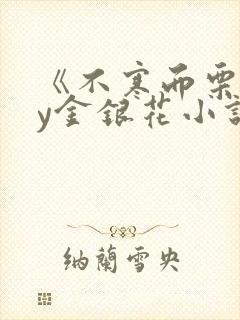 《不寒而栗
y金银花小說
纳蘭雪央